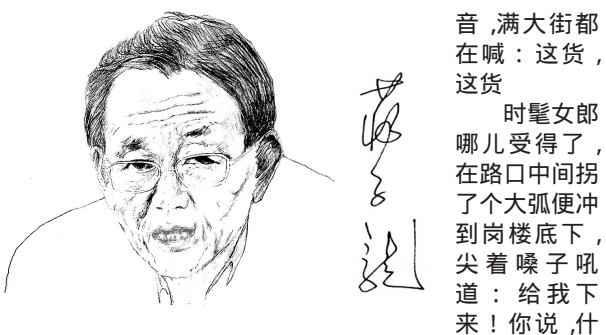 蒋子龍
音,满大街都
在喊：这货，
这货
时髦女郎
哪儿受得了，
在路口中间拐
了个大弧便冲
到岗楼底下，
尖着嗓子吼
道：给我下
来！你说,什